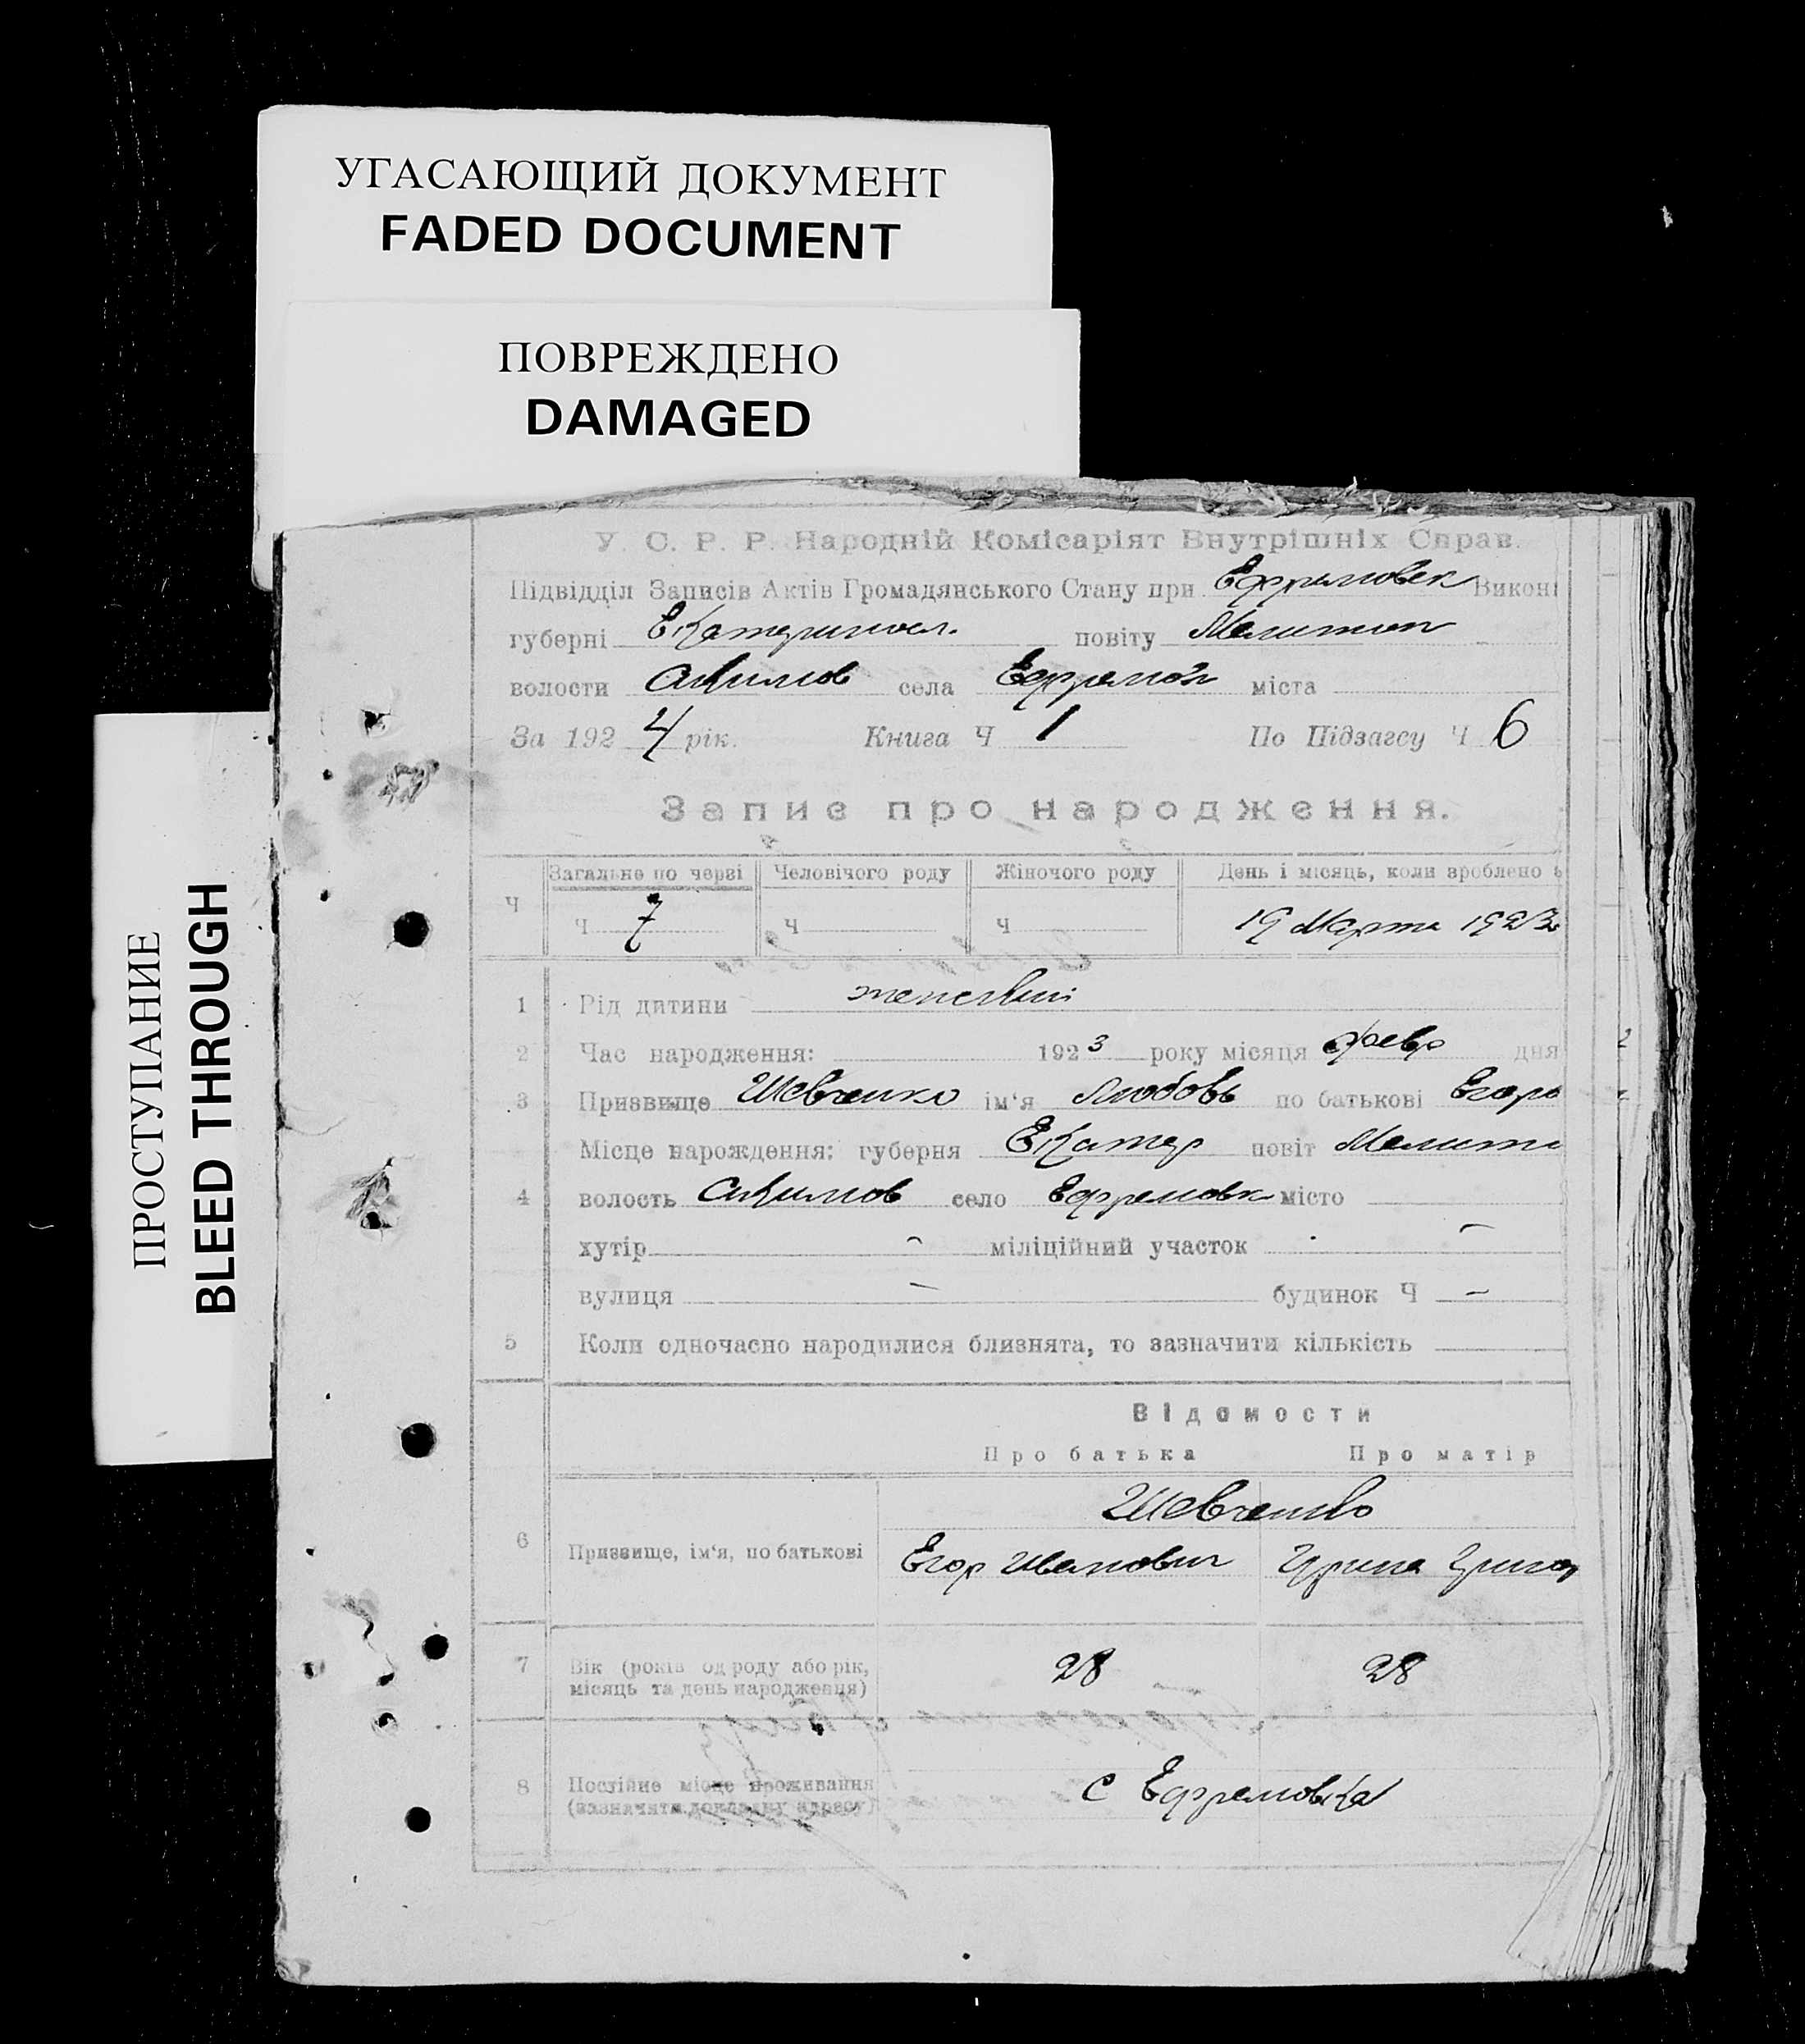 УГАСАЮЩИЙ ДОКУМЕНТ
FADED DOCUMENT
ПОВРЕЖДЕНО
DAMAGED
ПРОСТУПАНИЕ
BLEED THROUGH
У. С. Р. Р. Народній Комісаріят Внутрішніх Справ.
Підвідділ Записів Актів Громадянського Стану при Ефремовск Викон
губерні Екатериносл. повіту Мелитоп
волости Акимов села Ефремов міста
За 1924 рік. Книга Ч 1 По Підзагсу Ч 6
Запис про народження.
Ч Загальне по черві Человічого роду Жіночого роду День і місяць, коли зроблено
Ч 7 Ч Ч 19 Марта 1923
1 Рід дитини женский
2 Час народження: 1923 року місяця Февр дня
3 Призвище Шевченко ім'я Любовь по батькові Егоро
Місце народження: губерня Екатер повіт Мелито
4 волость Акимов село Ефремовк місто
хутір - міліційний участок -
вулиця - будинок Ч -
5 Коли одночасно народилися близнята, то зазначити кількість
Відомости
Про батька Про матір
Шевченко
6 Призвище, ім'я, по батькові Егор Иванович Ирина Григор
7 Вік (років од роду або рік, місяць та день народження) 28 28
8 Постійне місце проживання (зазначити докладну адресу) с Ефремовка